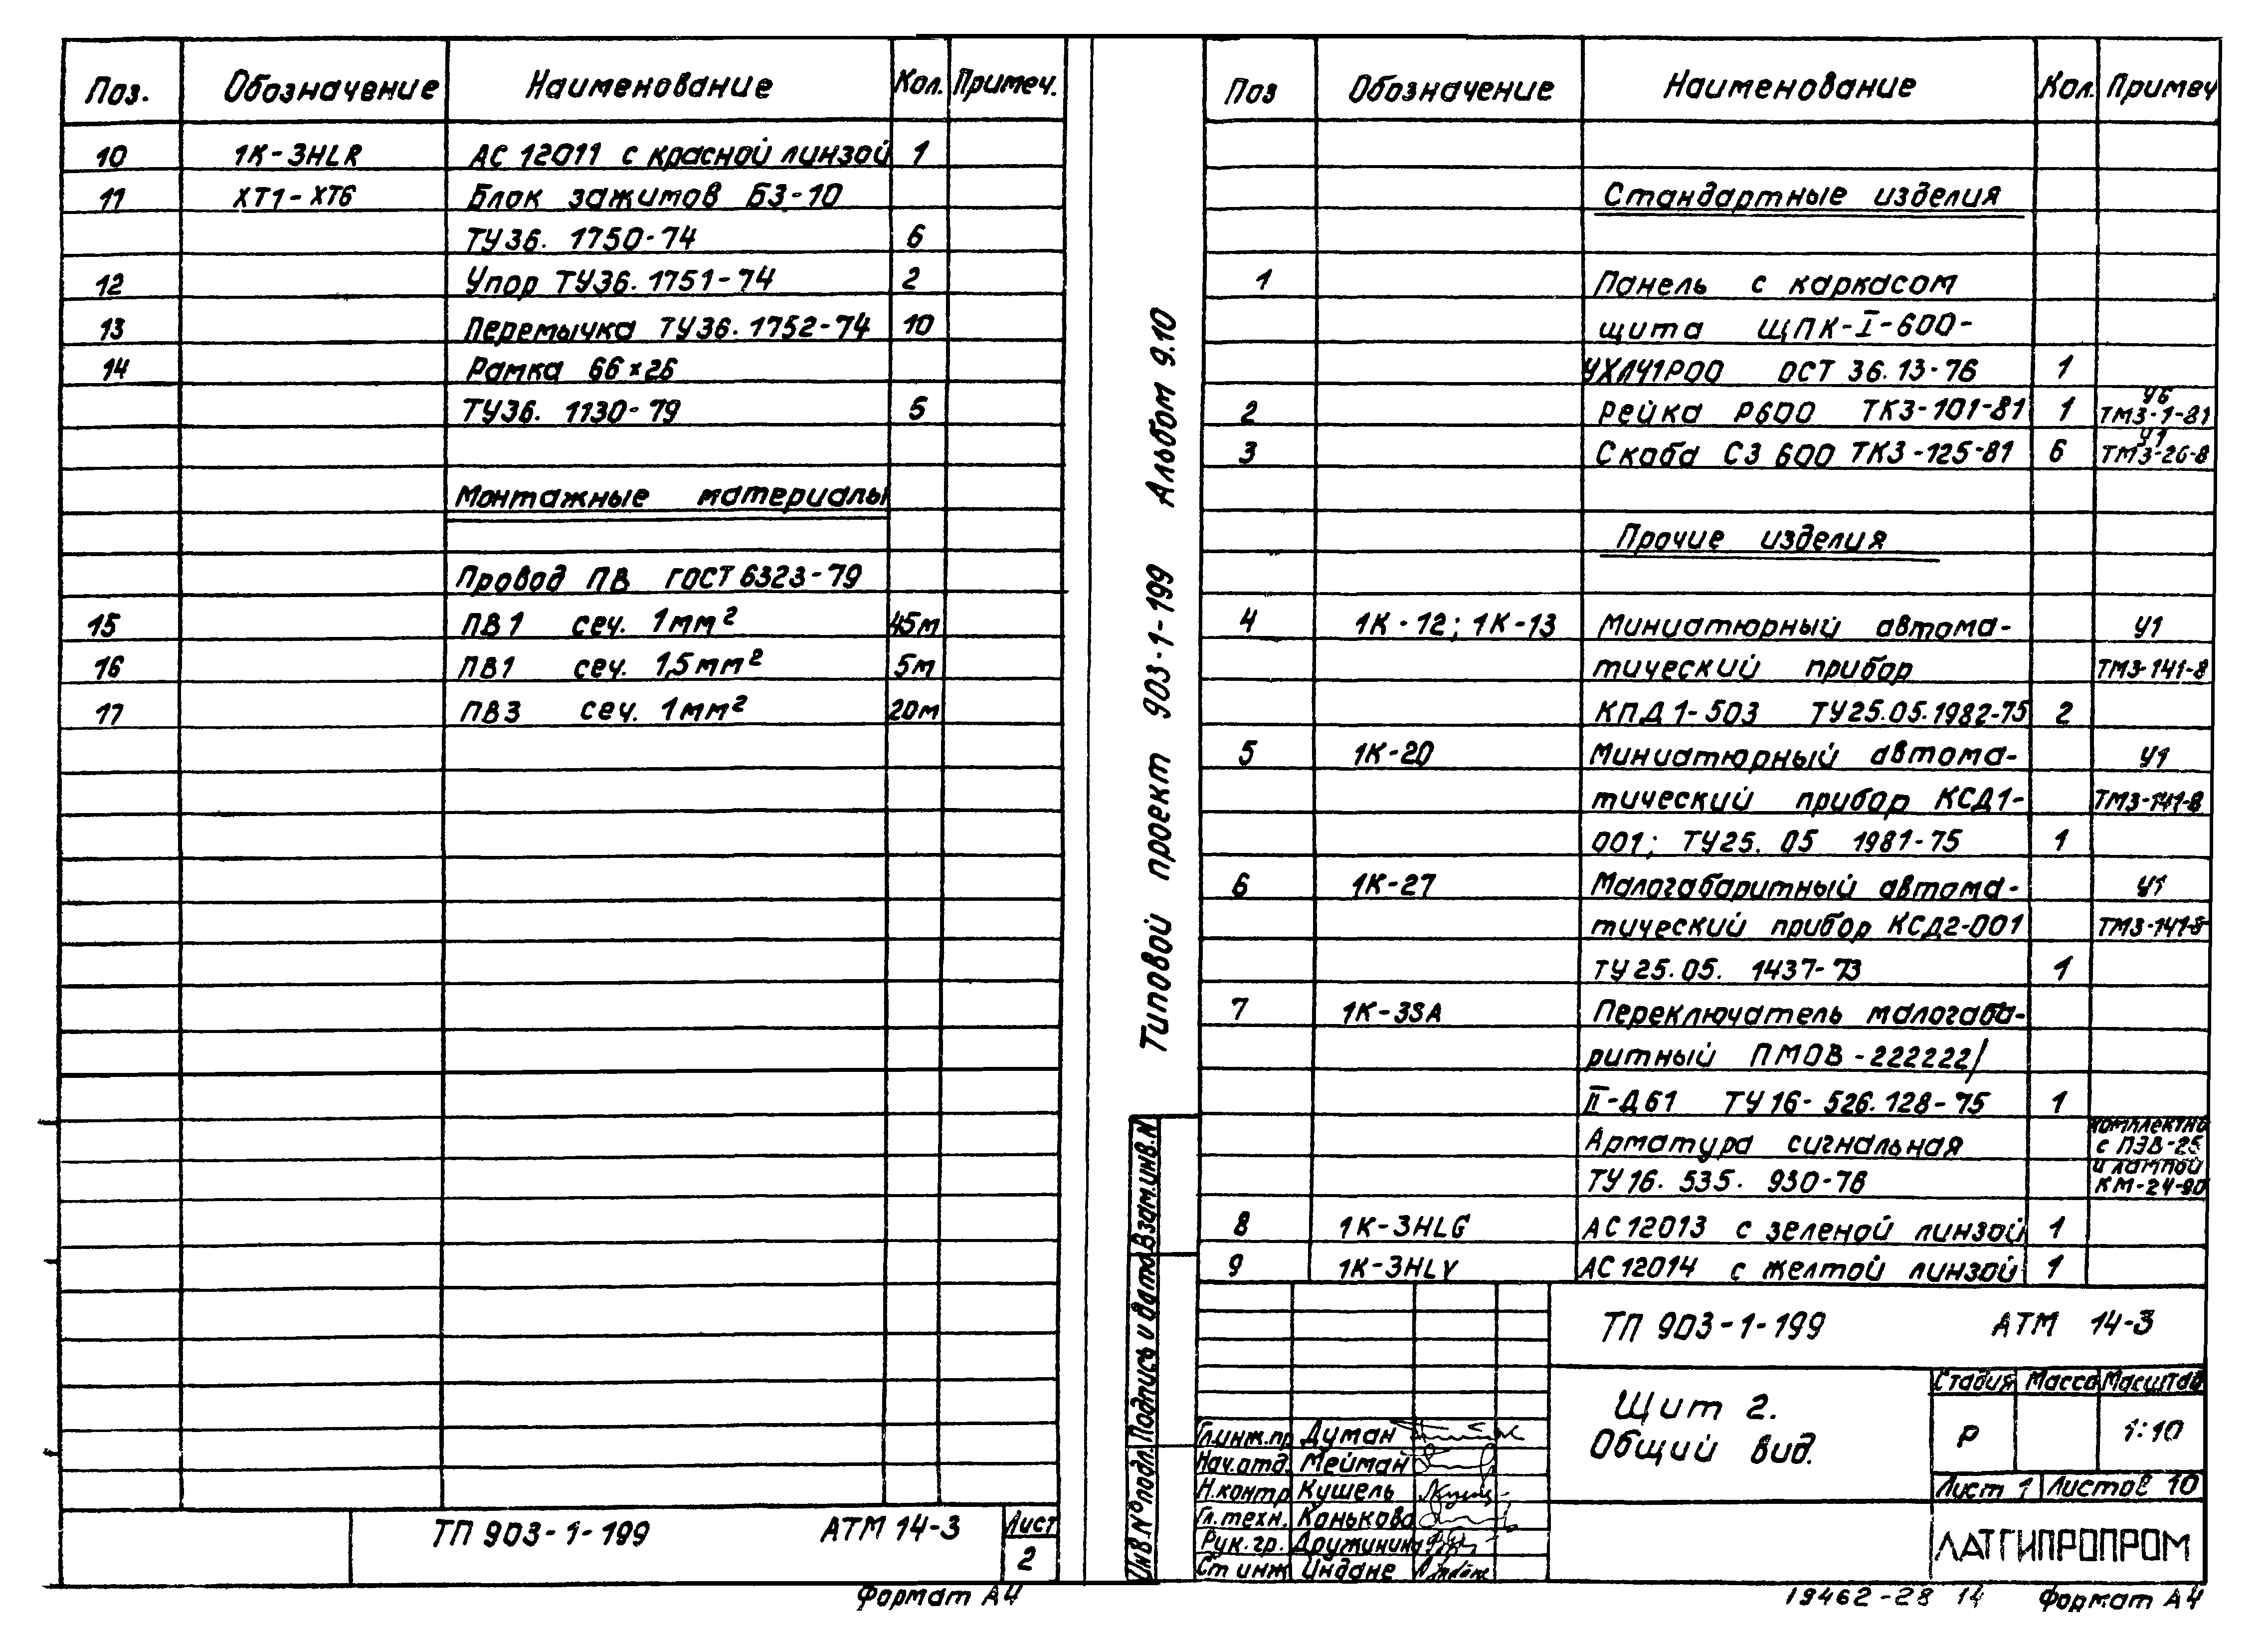 Поз. Обозначение Наименование Кол. Примеч.
10 1К-3HLR АС 12011 с красной линзой 1
11 ХТ1-ХТ6 Блок зажимов БЗ-10
ТУ36. 1750-74 6
12 Упор ТУ36. 1751-74 2
13 Перемычка ТУ36. 1752-74 10
14 Рамка 66×26
ТУ36. 1130-79 5
Монтажные материалы
Провод ПВ ГОСТ 6323-79
15 ПВ1 сеч. 1мм² 45м
16 ПВ1 сеч. 1,5мм² 5м
17 ПВ3 сеч. 1мм² 20м
ТП 903-1-199 АТМ 14-3 Лист
2
Формат А4
Типовой проект 903-1-199 Альбом 9.10
Взам.инв.N
Подпись и дата
Инв.N°подл.
Поз Обозначение Наименование Кол. Примеч
Стандартные изделия
1 Панель с каркасом
щита ЩПК-I-600-
УХЛЧ1Р00 ОСТ 36.13-76 1
2 Рейка Р600 ТК3-101-81 1 У6 ТМ3-1-81
3 Скоба С3 600 ТК3-125-81 6 У1 ТМ3-26-8
Прочие изделия
4 1К-12; 1К-13 Миниатюрный автома- У1
тический прибор ТМ3-141-8
КПД1-503 ТУ25.05.1982-75 2
5 1К-20 Миниатюрный автома- У1
тический прибор КСД1- ТМ3-141-8
001; ТУ25. 05 1981-75 1
6 1К-27 Малогабаритный автома- У1
тический прибор КСД2-001 ТМ3-141-8
ТУ25.05. 1437-73 1
7 1К-3SA Переключатель малогаба-
ритный ПМОВ-222222/
II-Д61 ТУ16-526.128-75 1
Арматура сигнальная комплектно с ПЭВ-25
ТУ16. 535. 930-76 и лампой КМ-24-90
8 1К-3HLG АС12013 с зеленой линзой 1
9 1К-3HLY АС12014 с желтой линзой 1
ТП 903-1-199 АТМ 14-3
Щит 2.
Общий вид.
Стадия Масса Масштаб
Р 1:10
Лист 1 Листов 10
ЛАТГИПРОПРОМ
Гл.инж.пр Думан
Нач.отд. Мейман
Н.контр Кушель
Гл.техн. Конькова
Рук.гр. Дружинина
Ст инж Индане
19462-28 14 Формат А4